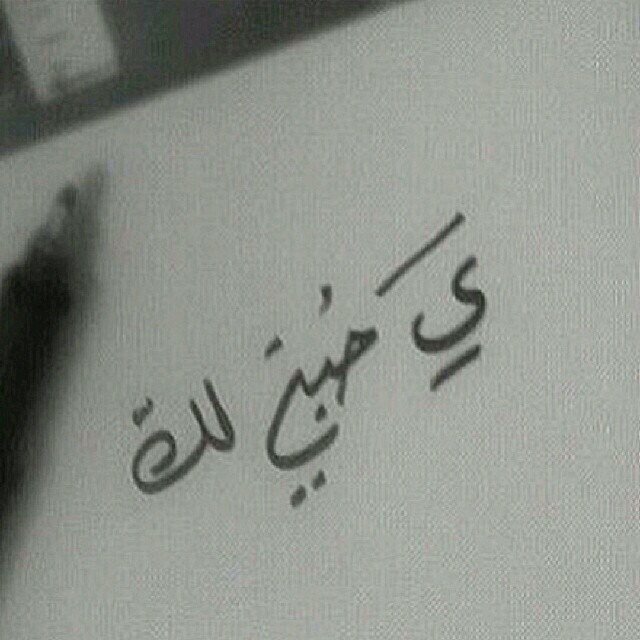 يَ حُبي لك